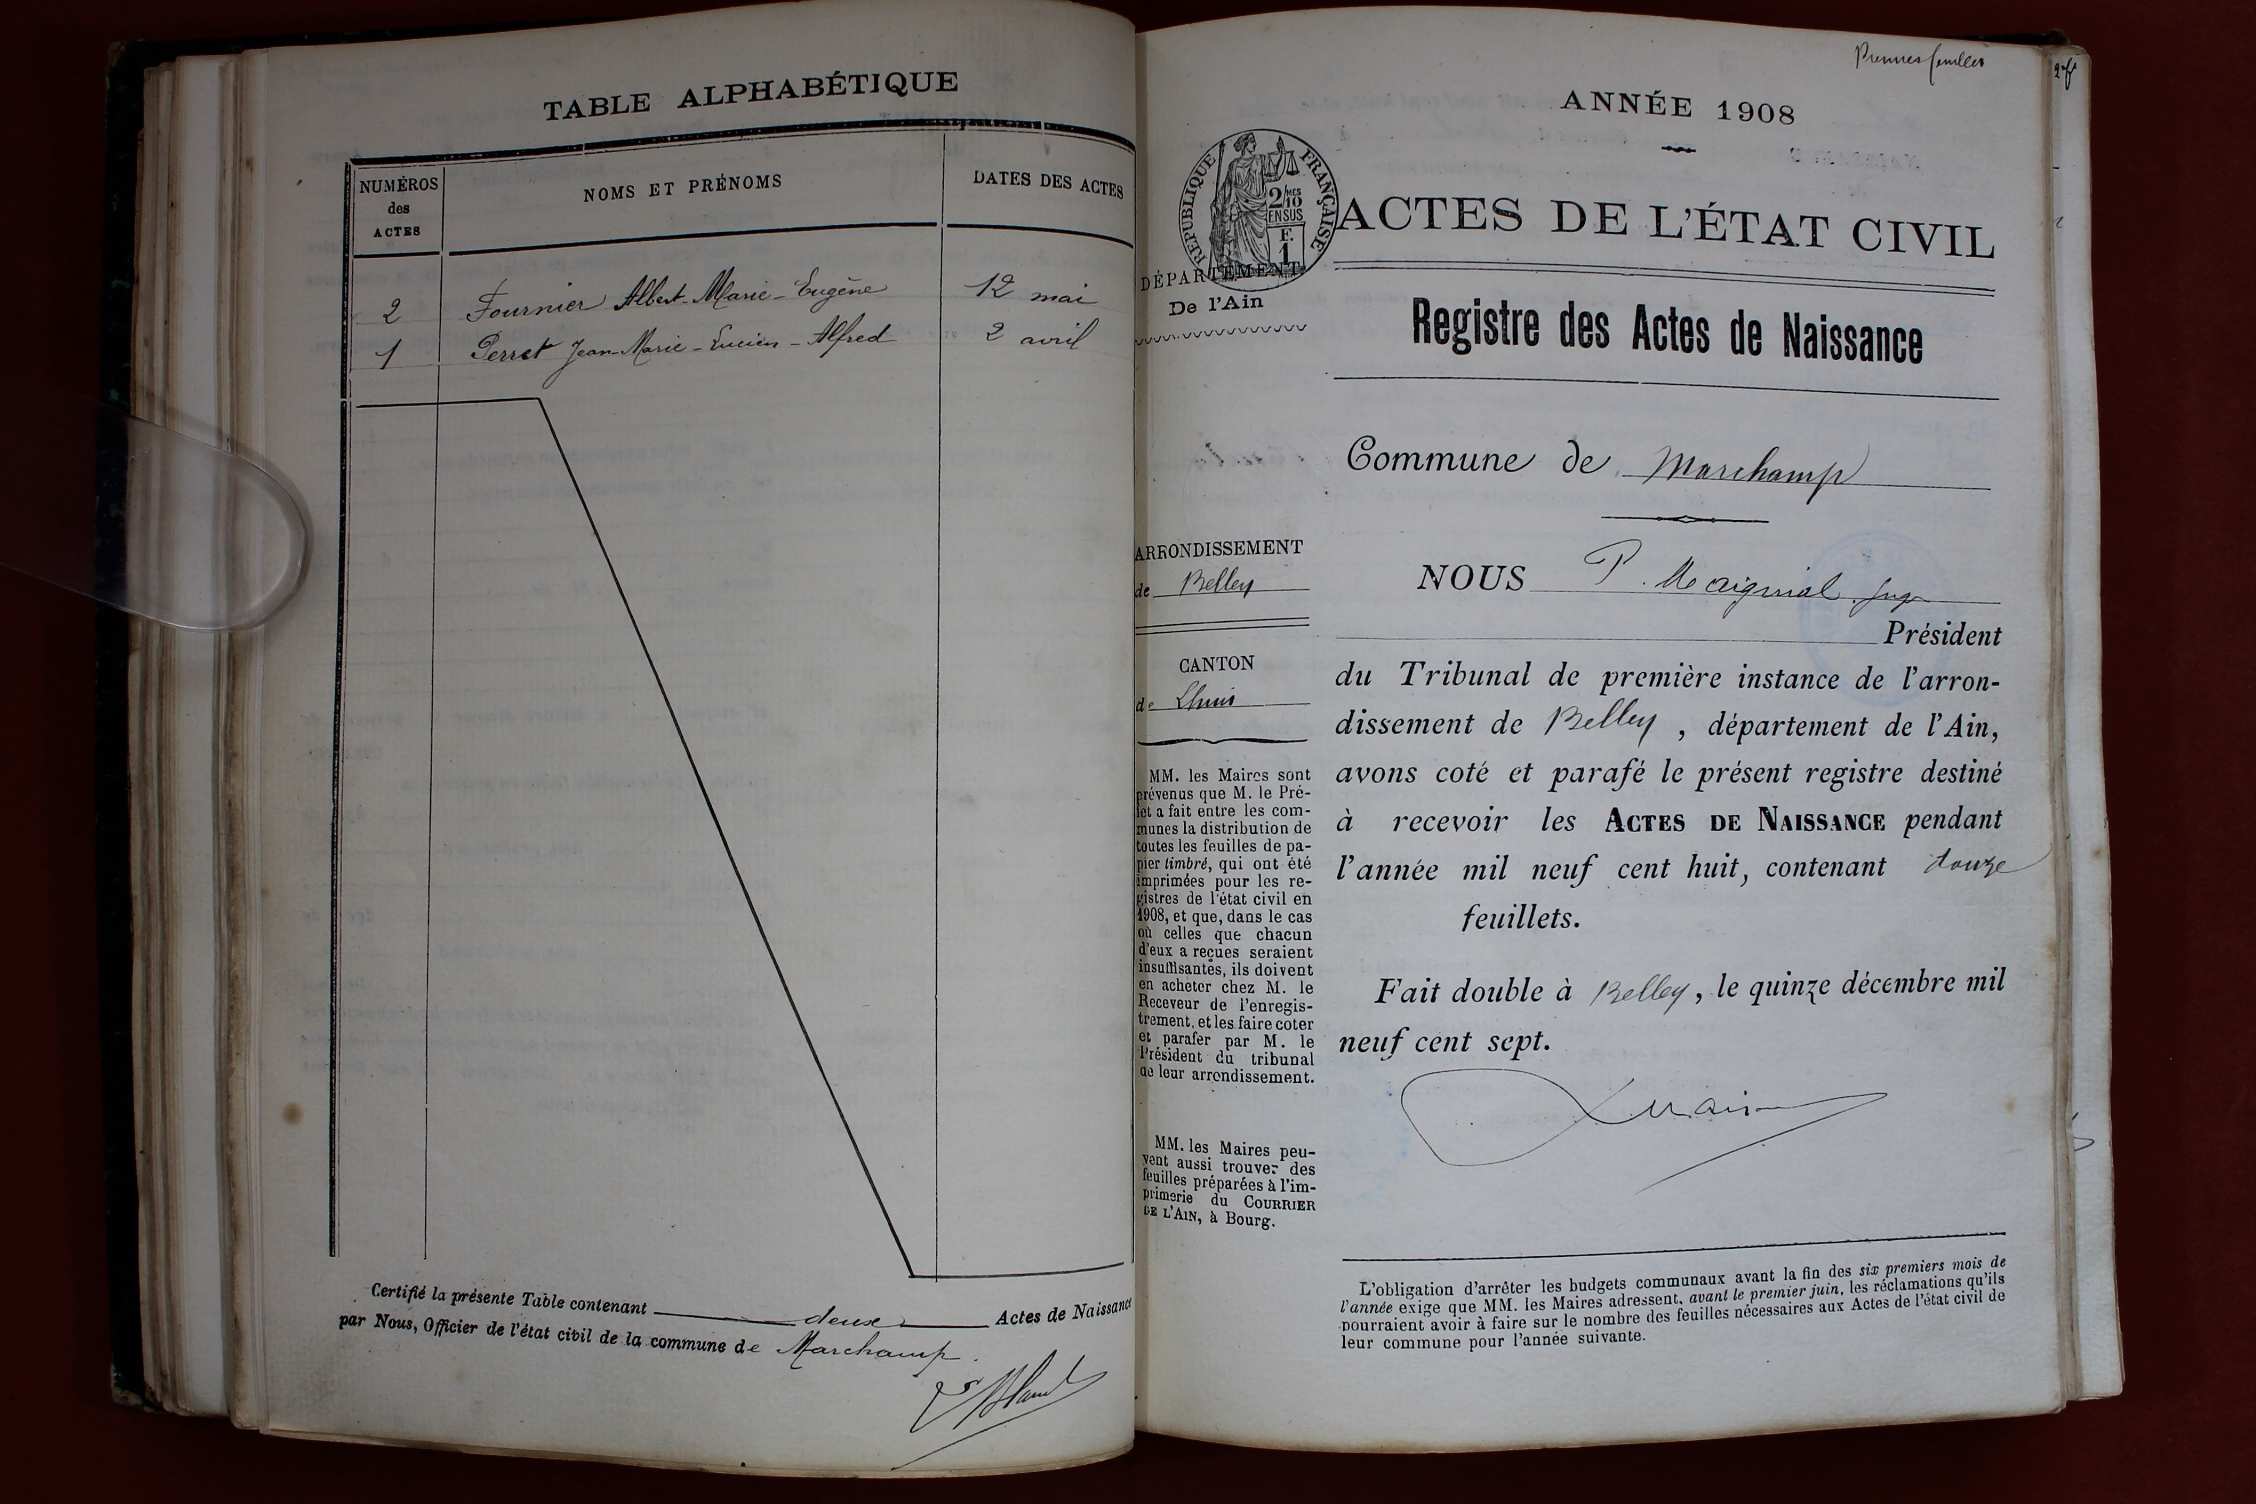 TABLE ALPHABÉTIQUE
NUMÉROS
des
ACTES
NOMS ET PRÉNOMS
DATES DES ACTES
2 Fournier Albert-Marie-Eugène 12 mai
1 Perret Jean-Marie-Lucien-Alfred 2 avril
Certifié la présente Table contenant deux Actes de Naissance
par Nous, Officier de l'état civil de la commune de Marchamp.
ANNÉE 1908
RÉPUBLIQUE FRANÇAISE
2/10 MES
EN SUS
F.
1
ACTES DE L'ÉTAT CIVIL
DÉPARTEMENT
De l'Ain
Registre des Actes de Naissance
Commune de Marchamp
ARRONDISSEMENT
de Belley
CANTON
de Lhuis
MM. les Maires sont
prévenus que M. le Pré-
fet a fait entre les com-
munes la distribution de
toutes les feuilles de pa-
pier timbré, qui ont été
imprimées pour les re-
gistres de l'état civil en
1908, et que, dans le cas
où celles que chacun
d'eux a reçues seraient
insuffisantes, ils doivent
en acheter chez M. le
Receveur de l'enregis-
trement, et les faire coter
et parafer par M. le
Président du tribunal
de leur arrondissement.
MM. les Maires peu-
vent aussi trouver des
feuilles préparées à l'im-
primerie du COURRIER
DE L'AIN, à Bourg.
NOUS P.
Président
du Tribunal de première instance de l'arron-
dissement de Belley, département de l'Ain,
avons coté et parafé le présent registre destiné
à recevoir les ACTES DE NAISSANCE pendant
l'année mil neuf cent huit, contenant douze
feuillets.
Fait double à Belley, le quinze décembre mil
neuf cent sept.
L'obligation d'arrêter les budgets communaux avant la fin des six premiers mois de
l'année exige que MM. les Maires adressent, avant le premier juin, les réclamations qu'ils
pourraient avoir à faire sur le nombre des feuilles nécessaires aux Actes de l'état civil de
leur commune pour l'année suivante.